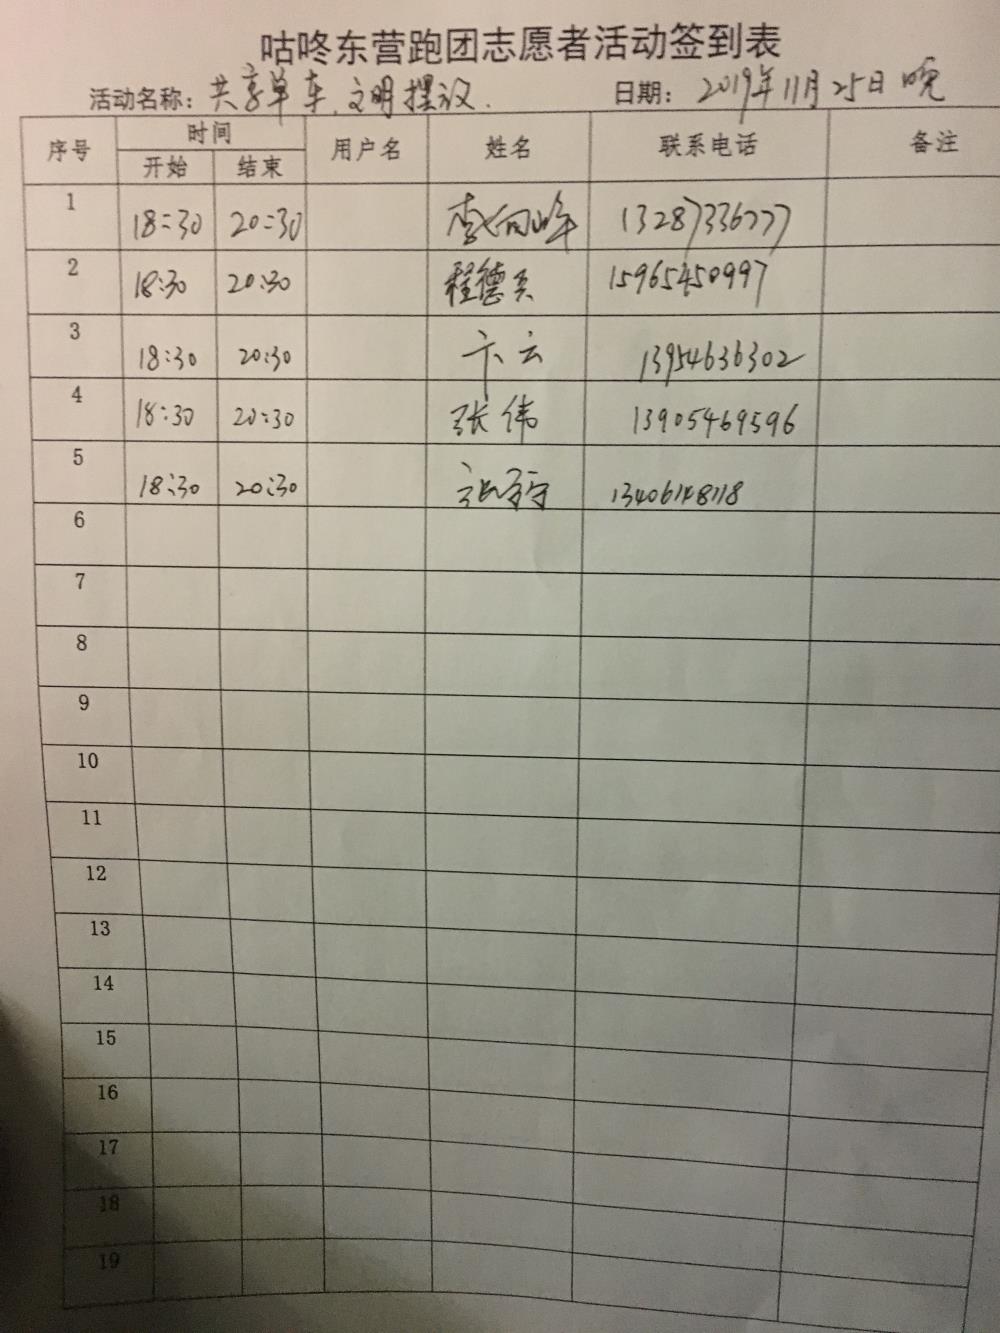 咕咚东营跑团志愿者活动签到表
活动名称：共享单车、文明摆设. 日期：2019年11月25日 晚
序号 时间 用户名 姓名 联系电话 备注
开始 结束
1 18:30 20:30 李向峰 13287336777
2 18:30 20:30 程德 15965450997
3 18:30 20:30 卞云 13954636302
4 18:30 20:30 张伟 13905469596
5 18:30 20:30 13406148118
6
7
8
9
10
11
12
13
14
15
16
17
18
19